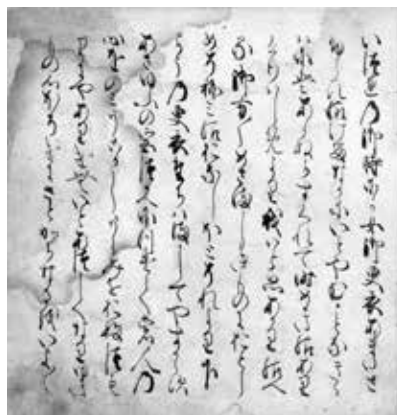 いつれの御時にか女御更衣あまたさ
ふらひ給けるなかにいとやむことなき
きはにはあらぬかすくれて時めき給あり
けりはしめより我はと思あかり給へ
る御方〳〵めさましきものにおとし
めそねみ給おなしほとそれより下
らうの更衣たちはましてやすからす
あさゆふの宮つかへにつけても人の
心をのみうこかしうらみをおふつも
りにやありけむいとあつしくなりゆき
もの心ほそけにさとかちなるをいよ〳〵